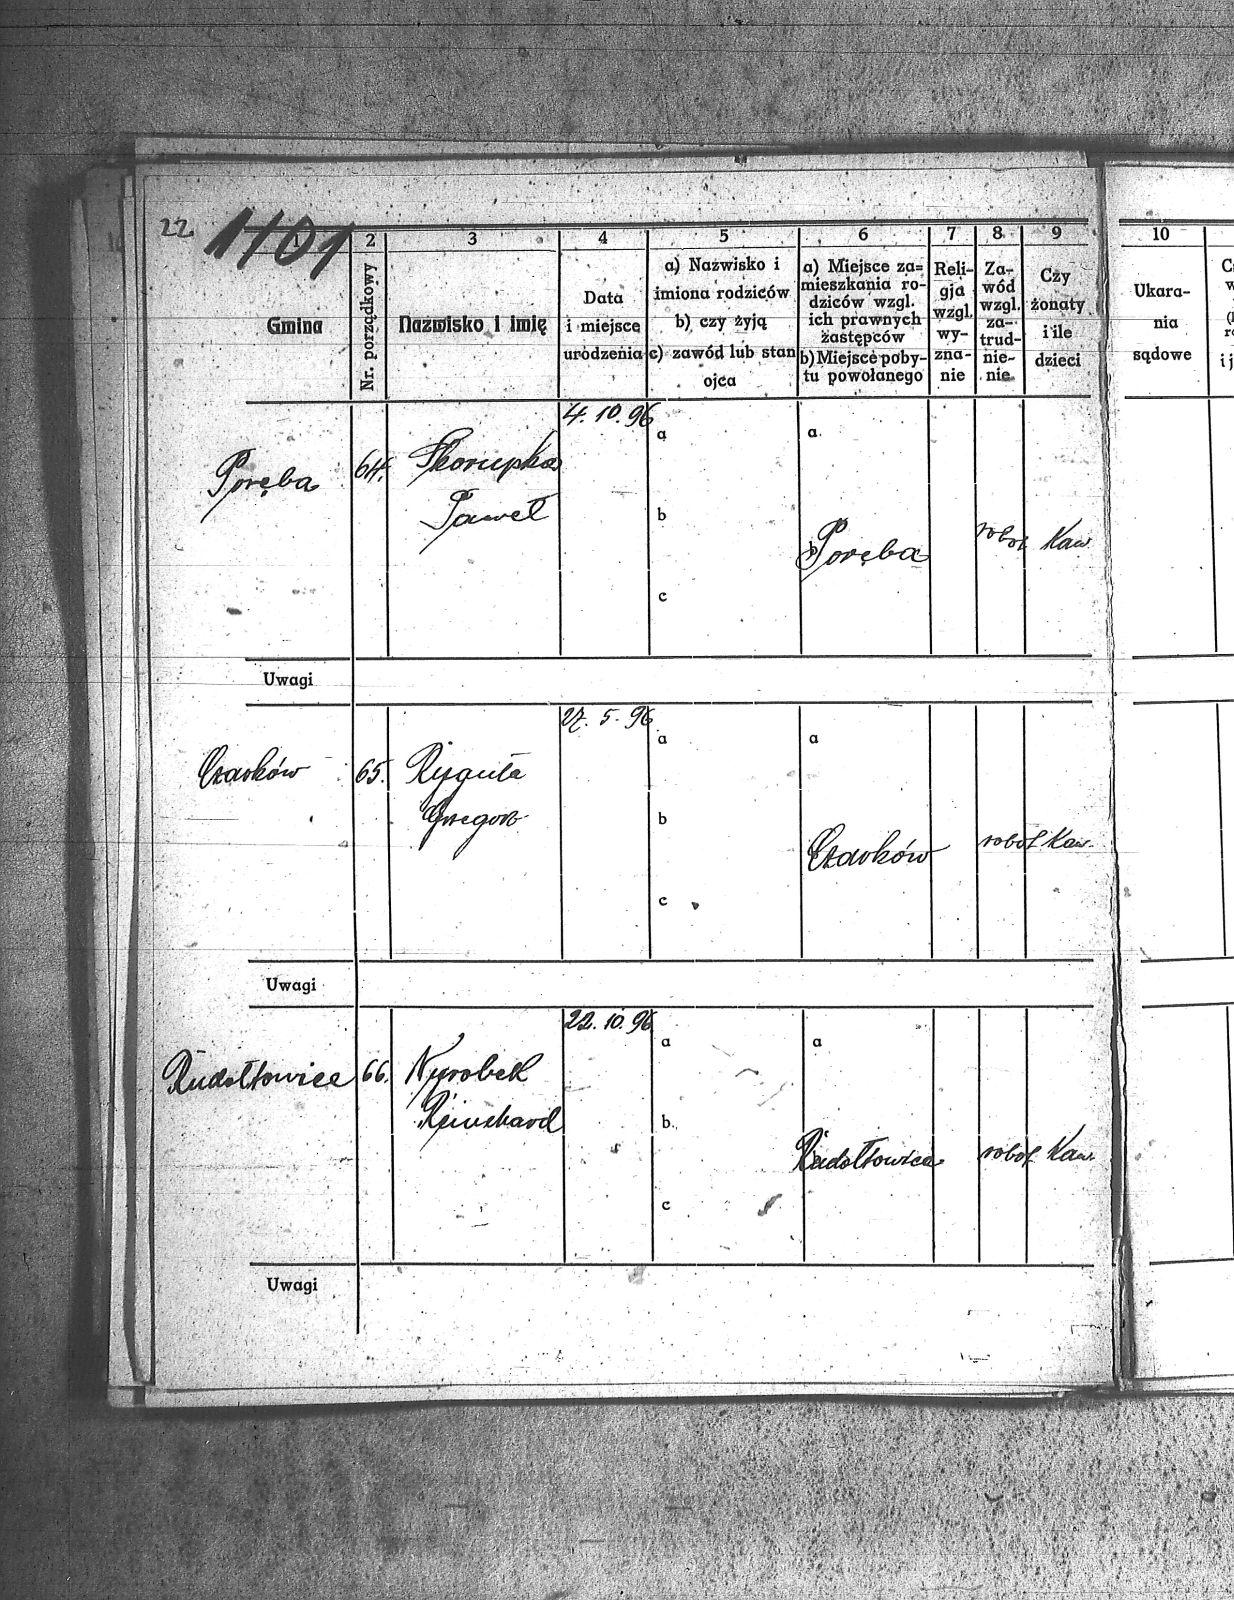 22
1101
1 2 3 4 5 6 7 8 9 10
Gmina
Nr. porządkowy
Nazwisko i imię
Data
i miejsce
urodzenia
a) Nazwisko i
imiona rodziców
b) czy żyją
c) zawód lub stan
ojca
a) Miejsce za=
mieszkania ro-
dziców wzgl.
ich prawnych
zastępców
b) Miejsce poby-
tu powołanego
Reli-
gja
wzgl.
wy-
zna-
nie
Za-
wód
wzgl.
za-
trud-
nie-
nie
Czy
żonaty
i ile
dzieci
Ukara-
nia
sądowe
4. 10. 96
a a
Poręba 64. Skorupka
Paweł
b
b Poręba robot Kaw.
c
Uwagi
27. 5. 96
a a
Czarków 65. Ryguła
Gregor
b
Czarków robot Kaw.
c
Uwagi
22. 10. 96
a a
Rudołtowice 66. Nyrobek
Reinhard
b
Rudołtowice robot Kaw.
c
Uwagi